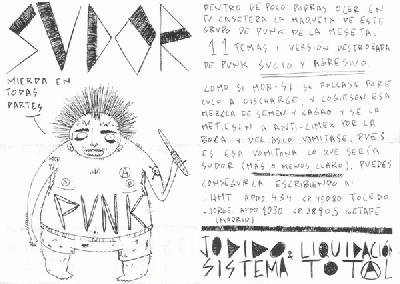 SUDOR
MIERDA EN
TODAS
PARTES
PUNK
DENTRO DE POCO PODRAS OLER EN
TU CASETERA LA MAQUETA DE ESTE
GRUPO DE PUNK DE LA MESETA.
11 TEMAS + VERSION DESTROZADA
DE PUNK SUCIO Y AGRESIVO.
COMO SI MOB-47 SE FOLLASE POR E
CULO A DISCHARGE, Y COGIESEN ESA
MEZCLA DE SEMEN Y CAGAO Y SE LA
METIESEN A ANTI-CIMEX POR LA
BOCA Y DEL ASCO VOMITASE. PUES
ES ESA VOMITONA LO QUE SERÍA
SUDOR (MAS O MENOS CLARO). PUEDES
CONSEGUIRLA ESCRIBIENDO A:
-HMT APDO 434 CP 45080 TOLEDO
-JORGE. APDO 1030 CP 28905 GETAFE
(MADRID)
JODIDO & LIQUIDACIÓ
SISTEMA TOTAL